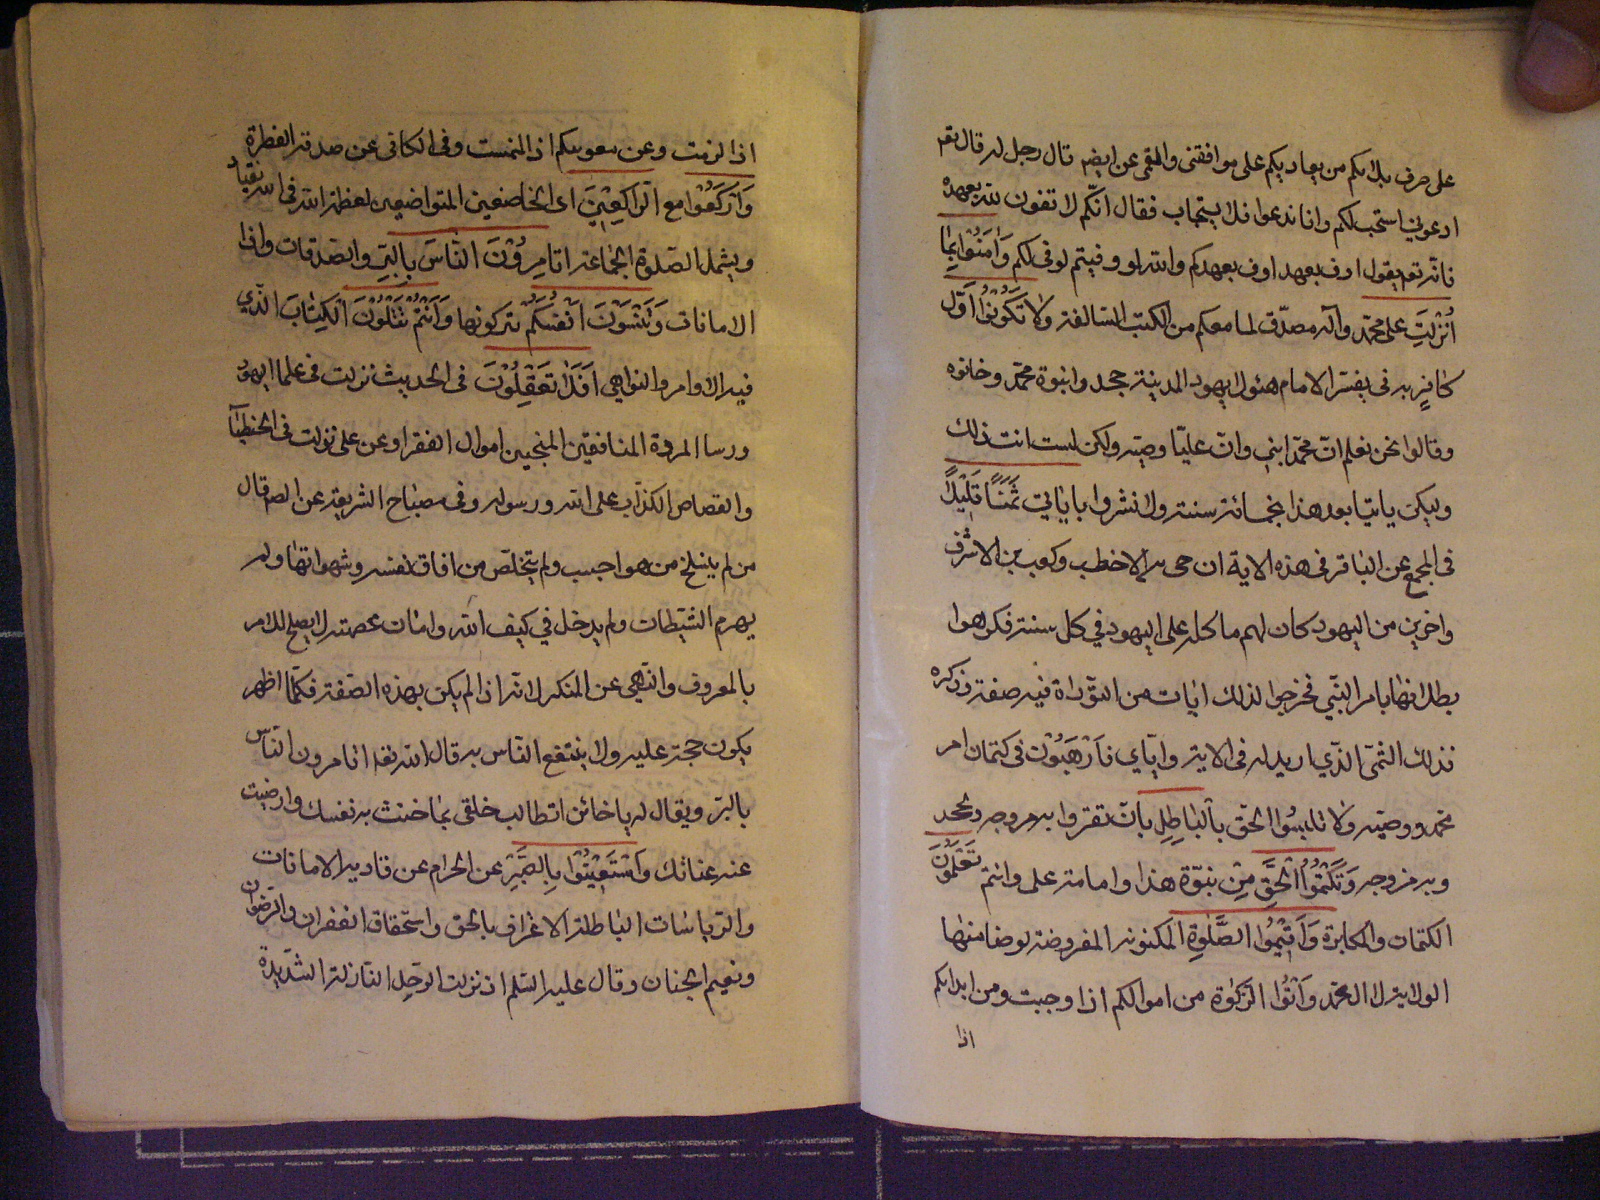 على حرف بلائكم من يعاديكم على موافقتي والقمي عن ايضم قال رجل له قال تعم
ادعوني استجب لكم وانا ندعوا فلا يستجاب فقال انّكم لا تفون لله بعهده
فانّه تعم يقول اوف بعهد اوف بعهدكم والله لو وفيتم لوفى لكم وَاٰمَنُوْا بِمٰا
اُنْزِلَتِ على محمّد وآله مصدّق لما معكم من الكتب السّالفة ولا تَكُوْنُوْا اَوَّل
كافرٍ به في يفسّر الامام هئولا يهود المدينة جحدوا نبوة محمّد وخانوه
وقالوا نحن نعلم انّ محمّدا نبي وانّ عليّا وصيّه ولكن لست انت ذلك
وليكن ياتيا بعد هذا بخمسائة سنة ولا تشروا باياتي ثَمَنًا قَلِيْلًا
في المجمع عن الباقر في هذه الاية ان حي بن الاخطب وكعب بن الاشرف
واخرين من اليهود كان لهم ماكلة على اليهود في كل سنة فكرهوا
بطلانها بامر النبّي فحرجوا لذلك ايات من التوّراة فيه صفته وذكره
فذلك الثمن الذّي اريد له في الاية وايّاي فَاَرْهَبُوْن في كتمان امر
محمد ووصيّه ولا تلبِسُوا الحَق بِآلبٰاطِلِ بانّ تقروا به من وجه وتجحد
وبه من وجه وَتَكْتُمُوُا الْحَقَّ مِنْ نبوّة هذا وامامة على وانتم تَعْلَمُوْنَ
الكتمان والمكابرة وَاَقِيْمُوا الصَّلٰوةِ المكتوبة المفروضة لوضا منها
الولاية لال محمّد وَآتُوُا الزَّكٰوة من اموالكم اذا وجبت ومن ابدانكم
اذا
اذا لزمت وعن معونتكم اذا التمست وفي الكافي عن صدقة الفطرة
وَآرْكَعُوْا مع الرّٰاكِعِيْنَ اى الخاضعين المتواضعين لعظمة الله في الانقياد
ويشمل الصّلوة الجماعة اتامِرُوْنَ النّاسَ بِالبِّرِ والصّدقات واذا
الامانات وَتَنْسَوْنَ اَنْفُسَكُمْ تتركونها وَاَنْتُمْ تَتْلُوْنَ الكِتٰابَ الذّي
فيه الاوامر والنواهي اَفَلا تَعْقِلُوْنَ في الحديث نزلت في علما اليهود
ورسا المردة المنافقين المنجبين اموال الفقرا وعن على نزلت في الخطبا
والقصاص الكذاب على الله ورسوله وفي مصباح الشريعة عن الصم قال
من لم ينسلخ من هواجسه ولم يتخلّص من افات نفسه وشهواتها ولم
يهزم الشيطان ولم يدخل في كنف الله وامان عصمته لا يصلح للامر
بالمعروف والنّهي عن المنكر لانّه اذا لم يكن بهذه الصّفة فكلّما اظهر
يكون حجة عليه ولا ينتفع النّاس به قال الله تعم اتامرون النّاس
بالبرّ ويقال له يا خائن اتطالب خلقي بما خنت به نفسك وارخيت
عنه عنانك وَاَسْتَعِيْنُوْا بِالصَّبْرِ عن الحرام عن تادية الامانات
والرّياسات الباطلة الاعتراف بالحق واستحقاق الغفران والرّضوان
ونعيم الجنان وقال عليه السّلم اذ نزلت الرّجل النّازلة الشّديدة